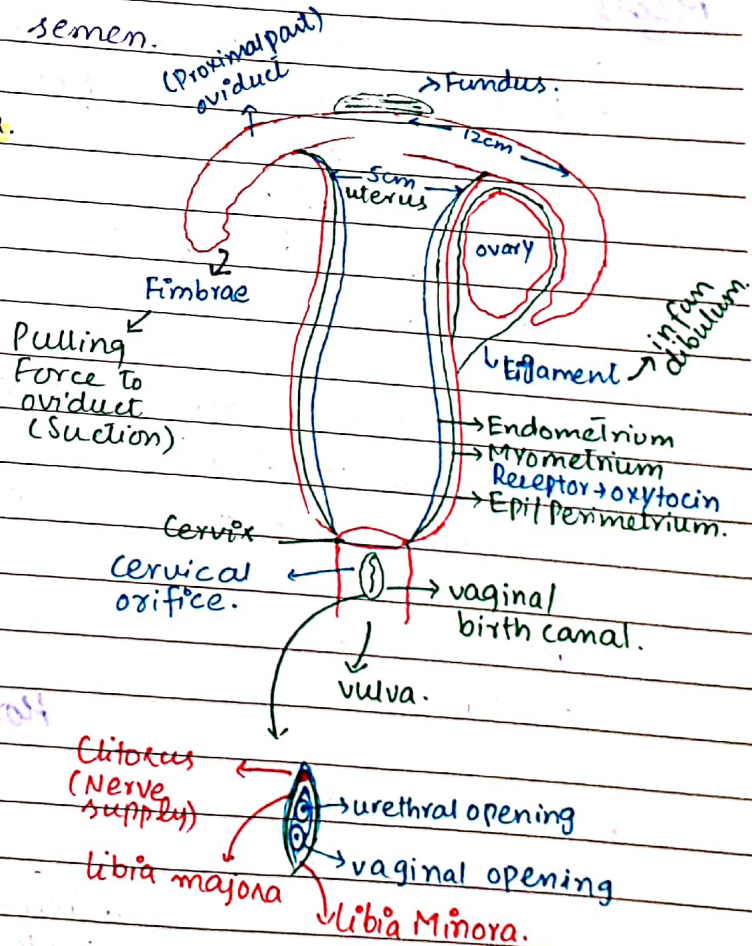 semen.
(Proximal part)
oviduct
→Fundus.
12cm
5cm
uterus
ovary
Fimbrae
Pulling
Force to
oviduct
(Suction)
infan
dibulum.
Ligament
Endometrium
Myometrium
Receptor→oxytocin
Epi/Perimetrium.
Cervix
cervical
orifice.
vaginal/
birth canal.
vulva.
Clitorus
(Nerve
supply)
urethral opening
vaginal opening
libia majora
libia Minora.